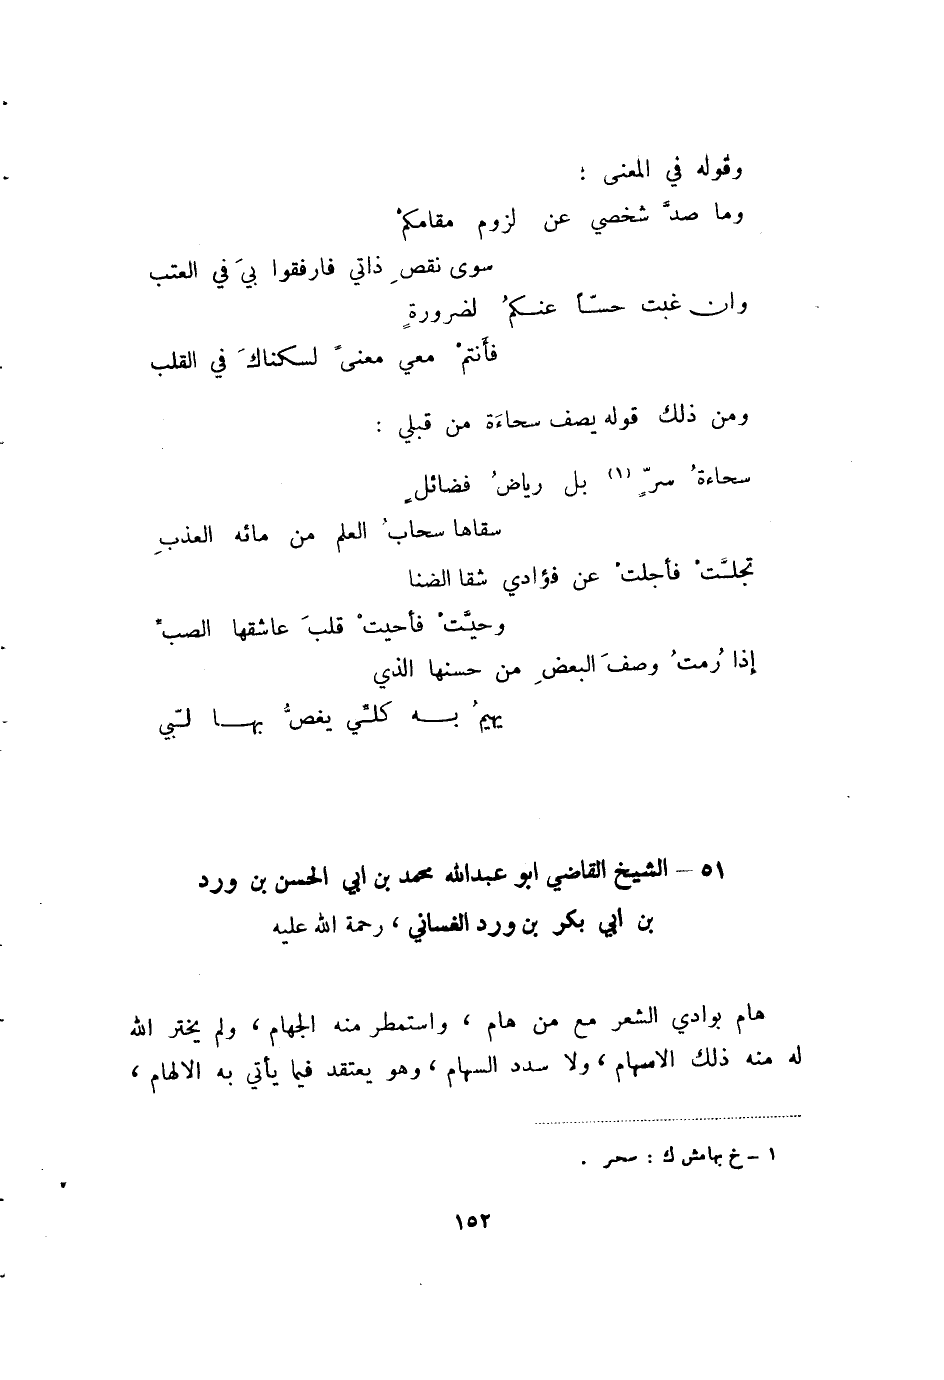 وقوله في المعنى :
وما صدَّ شخصي عن لزوم مقامكمْ
سوى نقصِ ذاتي فارفقوا بيَ في العتب
وان غبت حسّاً عنكمُ لضرورةٍ
فأنتمْ معي معنىً لسكناكَ في القلب
ومن ذلك قوله يصف سحاءَة من قبلي :
سحاءةُ سرّ (١) بل رياضُ فضائلٍ
سقاها سحابُ العلم من مائه العذبِ
تجلَّتْ فأجلتْ عن فؤادي شقا الضنا
وحيَّتْ فأحيتْ قلبَ عاشقها الصبّ
إذا رُمتُ وصفَ البعضِ من حسنها الذي
يهيمُ به كلّي يغصُّ بها لبّي
٥١ – الشيخ القاضي ابو عبدالله محمد بن ابي الحسن بن ورد
بن ابي بكر بن ورد الغساني ، رحمة الله عليه
هام بوادي الشعر مع من هام ، واستمطر منه الجهام ، ولم يختر الله
له منه ذلك الاسهام ، ولا سدد السهام ، وهو يعتقد فيما يأتي به الالهام ،
١ – خ بهامش ك : سحر .
١٥٢